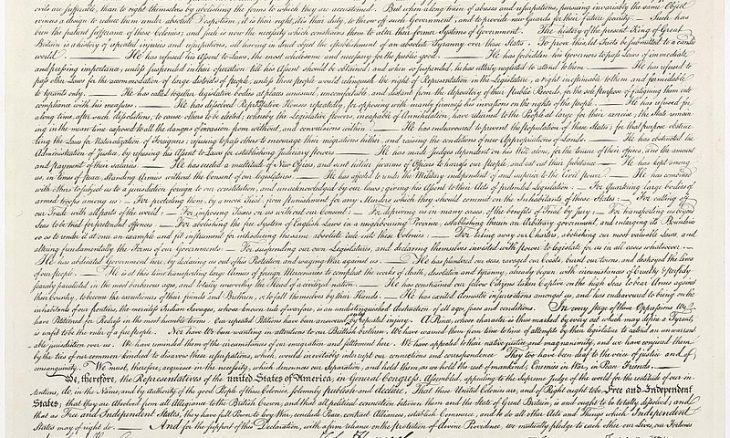 evils are sufferable, than to right themselves by abolishing the forms to which they are accustomed. But when a long train of abuses and usurpations, pursuing invariably the same Object
evinces a design to reduce them under absolute Despotism, it is their right, it is their duty, to throw off such Government, and to provide new Guards for their future security. — Such has
been the patient sufferance of these Colonies; and such is now the necessity which constrains them to alter their former Systems of Government. The history of the present King of Great
Britain is a history of repeated injuries and usurpations, all having in direct object the establishment of an absolute Tyranny over these States. To prove this, let Facts be submitted to a candid
world. — He has refused his Assent to Laws, the most wholesome and necessary for the public good. — He has forbidden his Governors to pass Laws of immediate
and pressing importance, unless suspended in their operation till his Assent should be obtained; and when so suspended, he has utterly neglected to attend to them. — He has refused to
pass other Laws for the accommodation of large districts of people, unless those people would relinquish the right of Representation in the Legislature, a right inestimable to them and formidable
to tyrants only. — He has called together legislative bodies at places unusual, uncomfortable, and distant from the depository of their Public Records, for the sole purpose of fatiguing them into
compliance with his measures. — He has dissolved Representative Houses repeatedly, for opposing with manly firmness his invasions on the rights of the people. — He has refused for
a long time, after such dissolutions, to cause others to be elected; whereby the Legislative powers, incapable of Annihilation, have returned to the People at large for their exercise; the State remain-
ing in the mean time exposed to all the dangers of invasion from without, and convulsions within. — He has endeavoured to prevent the population of these States; for that purpose obstruc-
ting the Laws for Naturalization of Foreigners; refusing to pass others to encourage their migrations hither, and raising the conditions of new Appropriations of Lands. — He has obstructed the
Administration of Justice, by refusing his Assent to Laws for establishing Judiciary powers. — He has made Judges dependent on his Will alone, for the tenure of their offices, and the amount
and payment of their salaries. — He has erected a multitude of New Offices, and sent hither swarms of Officers to harrass our people, and eat out their substance. — He has kept among
us, in times of peace, Standing Armies without the Consent of our legislatures. — He has affected to render the Military independent of and superior to the Civil power. — He has combined
with others to subject us to a jurisdiction foreign to our constitution, and unacknowledged by our laws; giving his Assent to their Acts of pretended Legislation: — For Quartering large bodies of
armed troops among us: — For protecting them, by a mock Trial, from punishment for any Murders which they should commit on the Inhabitants of these States: — For cutting off
our Trade with all parts of the world: — For imposing Taxes on us without our Consent: — For depriving us in many cases, of the benefits of Trial by Jury: — For transporting us beyond
Seas to be tried for pretended offences: — For abolishing the free System of English Laws in a neighbouring Province, establishing therein an Arbitrary government, and enlarging its Boundaries
so as to render it at once an example and fit instrument for introducing the same absolute rule into these Colonies: — For taking away our Charters, abolishing our most valuable Laws, and
altering fundamentally the Forms of our Governments: — For suspending our own Legislatures, and declaring themselves invested with power to legislate for us in all cases whatsoever. —
He has abdicated Government here, by declaring us out of his Protection and waging War against us. — He has plundered our seas, ravaged our Coasts, burnt our towns, and destroyed the lives
of our people. — He is at this time transporting large Armies of foreign Mercenaries to compleat the works of death, desolation and tyranny, already begun with circumstances of Cruelty & perfidy
scarcely paralleled in the most barbarous ages, and totally unworthy the Head of a civilized nation. — He has constrained our fellow Citizens taken Captive on the high Seas to bear Arms against
their Country, to become the executioners of their friends and Brethren, or to fall themselves by their Hands. — He has excited domestic insurrections amongst us, and has endeavoured to bring on the
inhabitants of our frontiers, the merciless Indian Savages, whose known rule of warfare, is an undistinguished destruction of all ages, sexes and conditions. In every stage of these Oppressions We
have Petitioned for Redress in the most humble terms: Our repeated Petitions have been answered only by repeated injury. A Prince, whose character is thus marked by every act which may define a Tyrant,
is unfit to be the ruler of a free people. Nor have We been wanting in attentions to our Brittish brethren. We have warned them from time to time of attempts by their legislature to extend an unwarrant-
able jurisdiction over us. We have reminded them of the circumstances of our emigration and settlement here. We have appealed to their native justice and magnanimity, and we have conjured them
by the ties of our common kindred to disavow these usurpations, which, would inevitably interrupt our connections and correspondence. They too have been deaf to the voice of justice and of
consanguinity. We must, therefore, acquiesce in the necessity, which denounces our Separation, and hold them, as we hold the rest of mankind, Enemies in War, in Peace Friends. —
We, therefore, the Representatives of the united States of America, in General Congress, Assembled, appealing to the Supreme Judge of the world for the rectitude of our in-
tentions, do, in the Name, and by Authority of the good People of these Colonies, solemnly publish and declare, That these United Colonies are, and of Right ought to be Free and Independent
States; that they are Absolved from all Allegiance to the British Crown, and that all political connection between them and the State of Great Britain, is and ought to be totally dissolved; and
that as Free and Independent States, they have full Power to levy War, conclude Peace, contract Alliances, establish Commerce, and to do all other Acts and Things which Independent
States may of right do. — And for the support of this Declaration, with a firm reliance on the protection of divine Providence, we mutually pledge to each other our Lives, our Fortunes